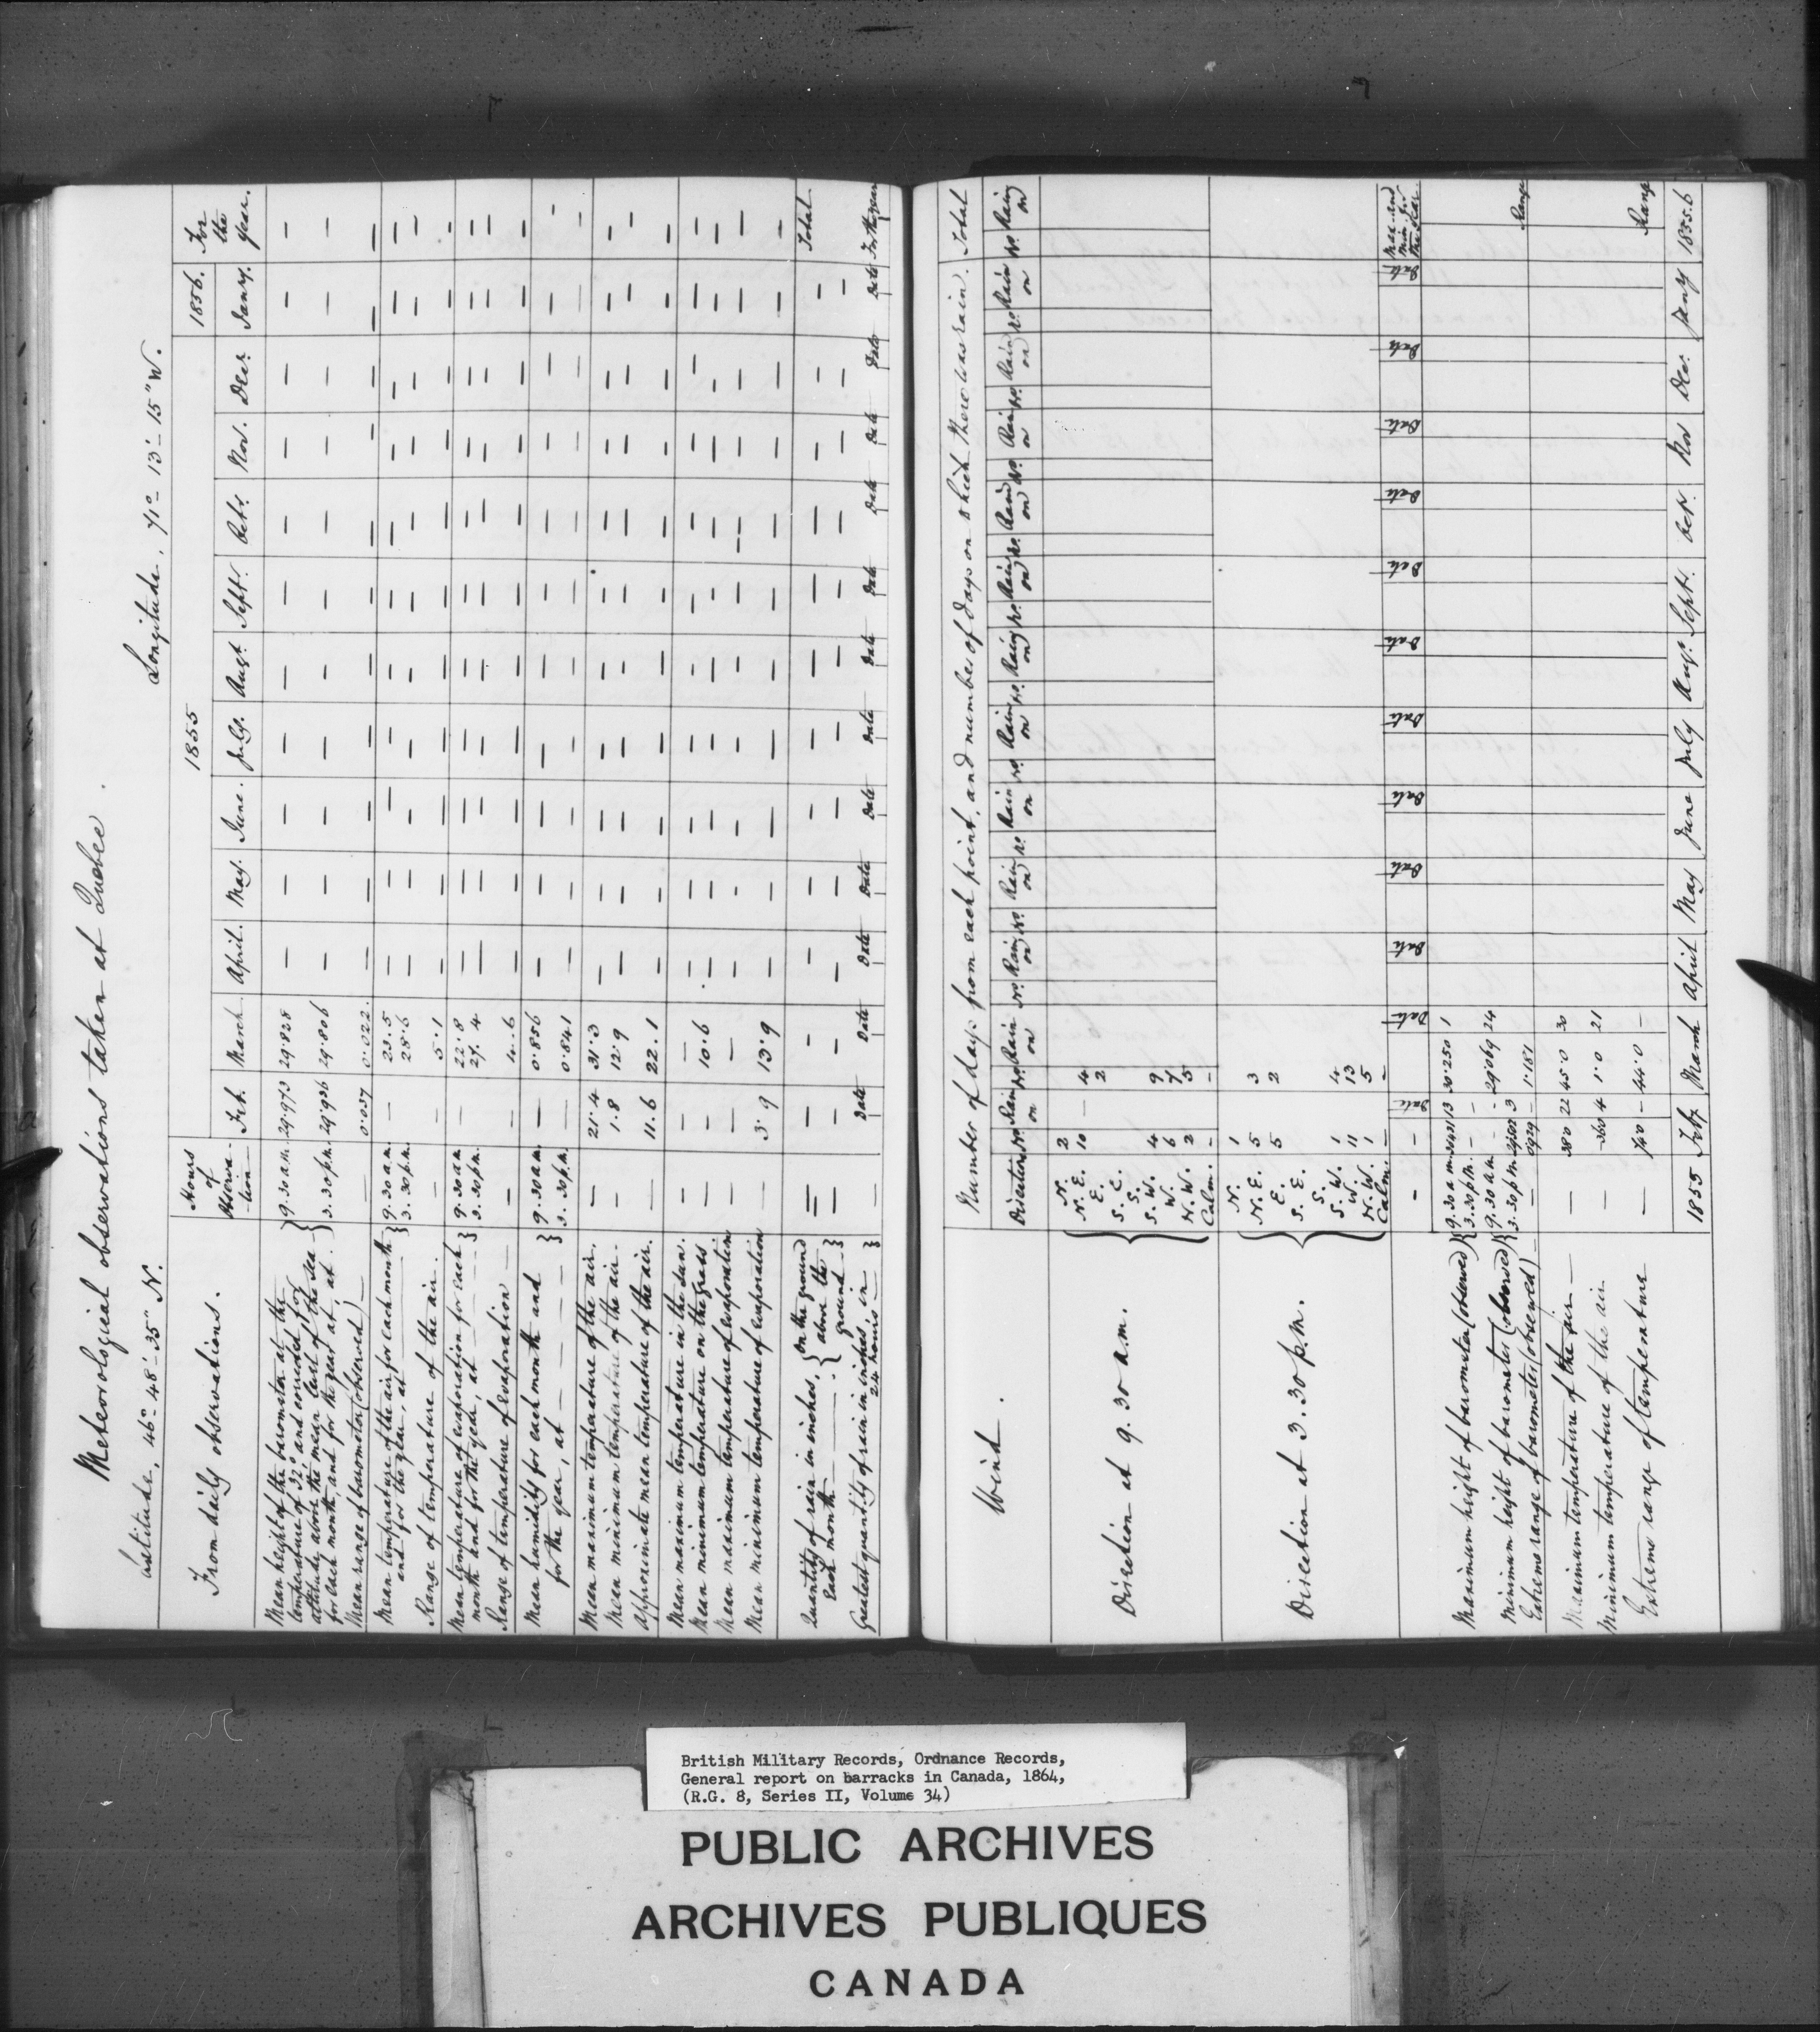 Meteorological observations taken at Quebec.
Latitude, 46°-48'-35" N. Longitude, 71°-13'-15" W.
From daily observations. Hours of Observa-tion 1855 1856. For the Year.
Feb. March April. May. June. July. Augt. Sept. Oct. Nov. Dec. Jany.
Mean height of the barometer at the
temperature of 32°, and corrected, for
altitude above the mean level of the sea
for each month, and for the year at, at
9.30 a.m. 29.973 29.828 — — — — — — — — — — —
3.30 p.m. 29.936 29.806 — — — — — — — — — — —
Mean range of barometer (observed) — 0.037 0.022. — — — — — — — — — — —
Mean temperature of the air, for each month
and for the year, at
9.30 a.m. — 23.5 — — — — — — — — — — —
3.30 p.m. — 28.6 — — — — — — — — — — —
Range of temperature of the air. — — 5.1 — — — — — — — — — — —
Mean temperature of evaporation for each
month and for the year, at
9.30 a.m. — 22.8 — — — — — — — — — — —
3.30 p.m. — 27.4 — — — — — — — — — — —
Range of temperature of evaporation — — 4.6 — — — — — — — — — — —
Mean humidity for each month and
for the year, at
9.30 a.m. — 0.856 — — — — — — — — — — —
3.30 p.m. — 0.841 — — — — — — — — — — —
Mean maximum temperature of the air. — 21.4 31.3 — — — — — — — — — — —
Mean minimum temperature of the air. — 1.8 12.9 — — — — — — — — — — —
Approximate mean temperature of the air. — 11.6 22.1 — — — — — — — — — — —
Mean maximum temperature in the sun. — — — — — — — — — — — — — —
Mean minimum temperature on the grass. — — 10.6 — — — — — — — — — — —
Mean maximum temperature of evaporation — — — — — — — — — — — — — —
Mean minimum temperature of evaporation — 3.9 13.9 — — — — — — — — — — —
Quantity of rain in inches, on the ground — — — — — — — — — — — — — Total
each month above the ground — — — — — — — — — — — — —
Greatest quantity of rain in inches, in 24 hours — Date Date Date Date Date Date Date Date Date Date Date Date For the year
Wind. Number of days from each point, and number of days on which there was rain. Total
Direction No. Rain on No. Rain on No. Rain on No. Rain on No. Rain on No. Rain on No. Rain on No. Rain on No. Rain on No. Rain on No. Rain on No. Rain on No. Rain on
Direction at 9.30 a.m.
N. 2
N. E. 10 — 4
E. 2
S. E.
S.
S. W. 4 9
W. 6 7
N. W. 2 5
Calm. — —
Direction at 3.30 p.m.
N. 1
N. E. 5 3
E. 5 2
S. E.
S.
S. W. 1 4
W. 11 13
N. W. 1 5
Calm. — —
— — Date Date Date Date Date Date Date Date Date Date Date Date Max. and Min. for the Year.
Maximum height of barometer (observed) 9.30 a.m. 13 30.250 1
3.30 p.m. — —
Minimum height of barometer (observed) 9.30 a.m. — — 29.069 24
3.30 p.m. 3
Extreme range of barometer (observed) — — 1.181 Range
Maximum temperature of the air — 38.0 22 45.0 30
Minimum temperature of the air — 4 1.0 21
Extreme range of temperature — — 44.0 — Range
1855 Feb. March April May June July Augt. Sept. Oct. Nov Dec. Jany 1855.6
British Military Records, Ordnance Records,
General report on barracks in Canada, 1864,
(R.G. 8, Series II, Volume 34)
PUBLIC ARCHIVES
ARCHIVES PUBLIQUES
CANADA